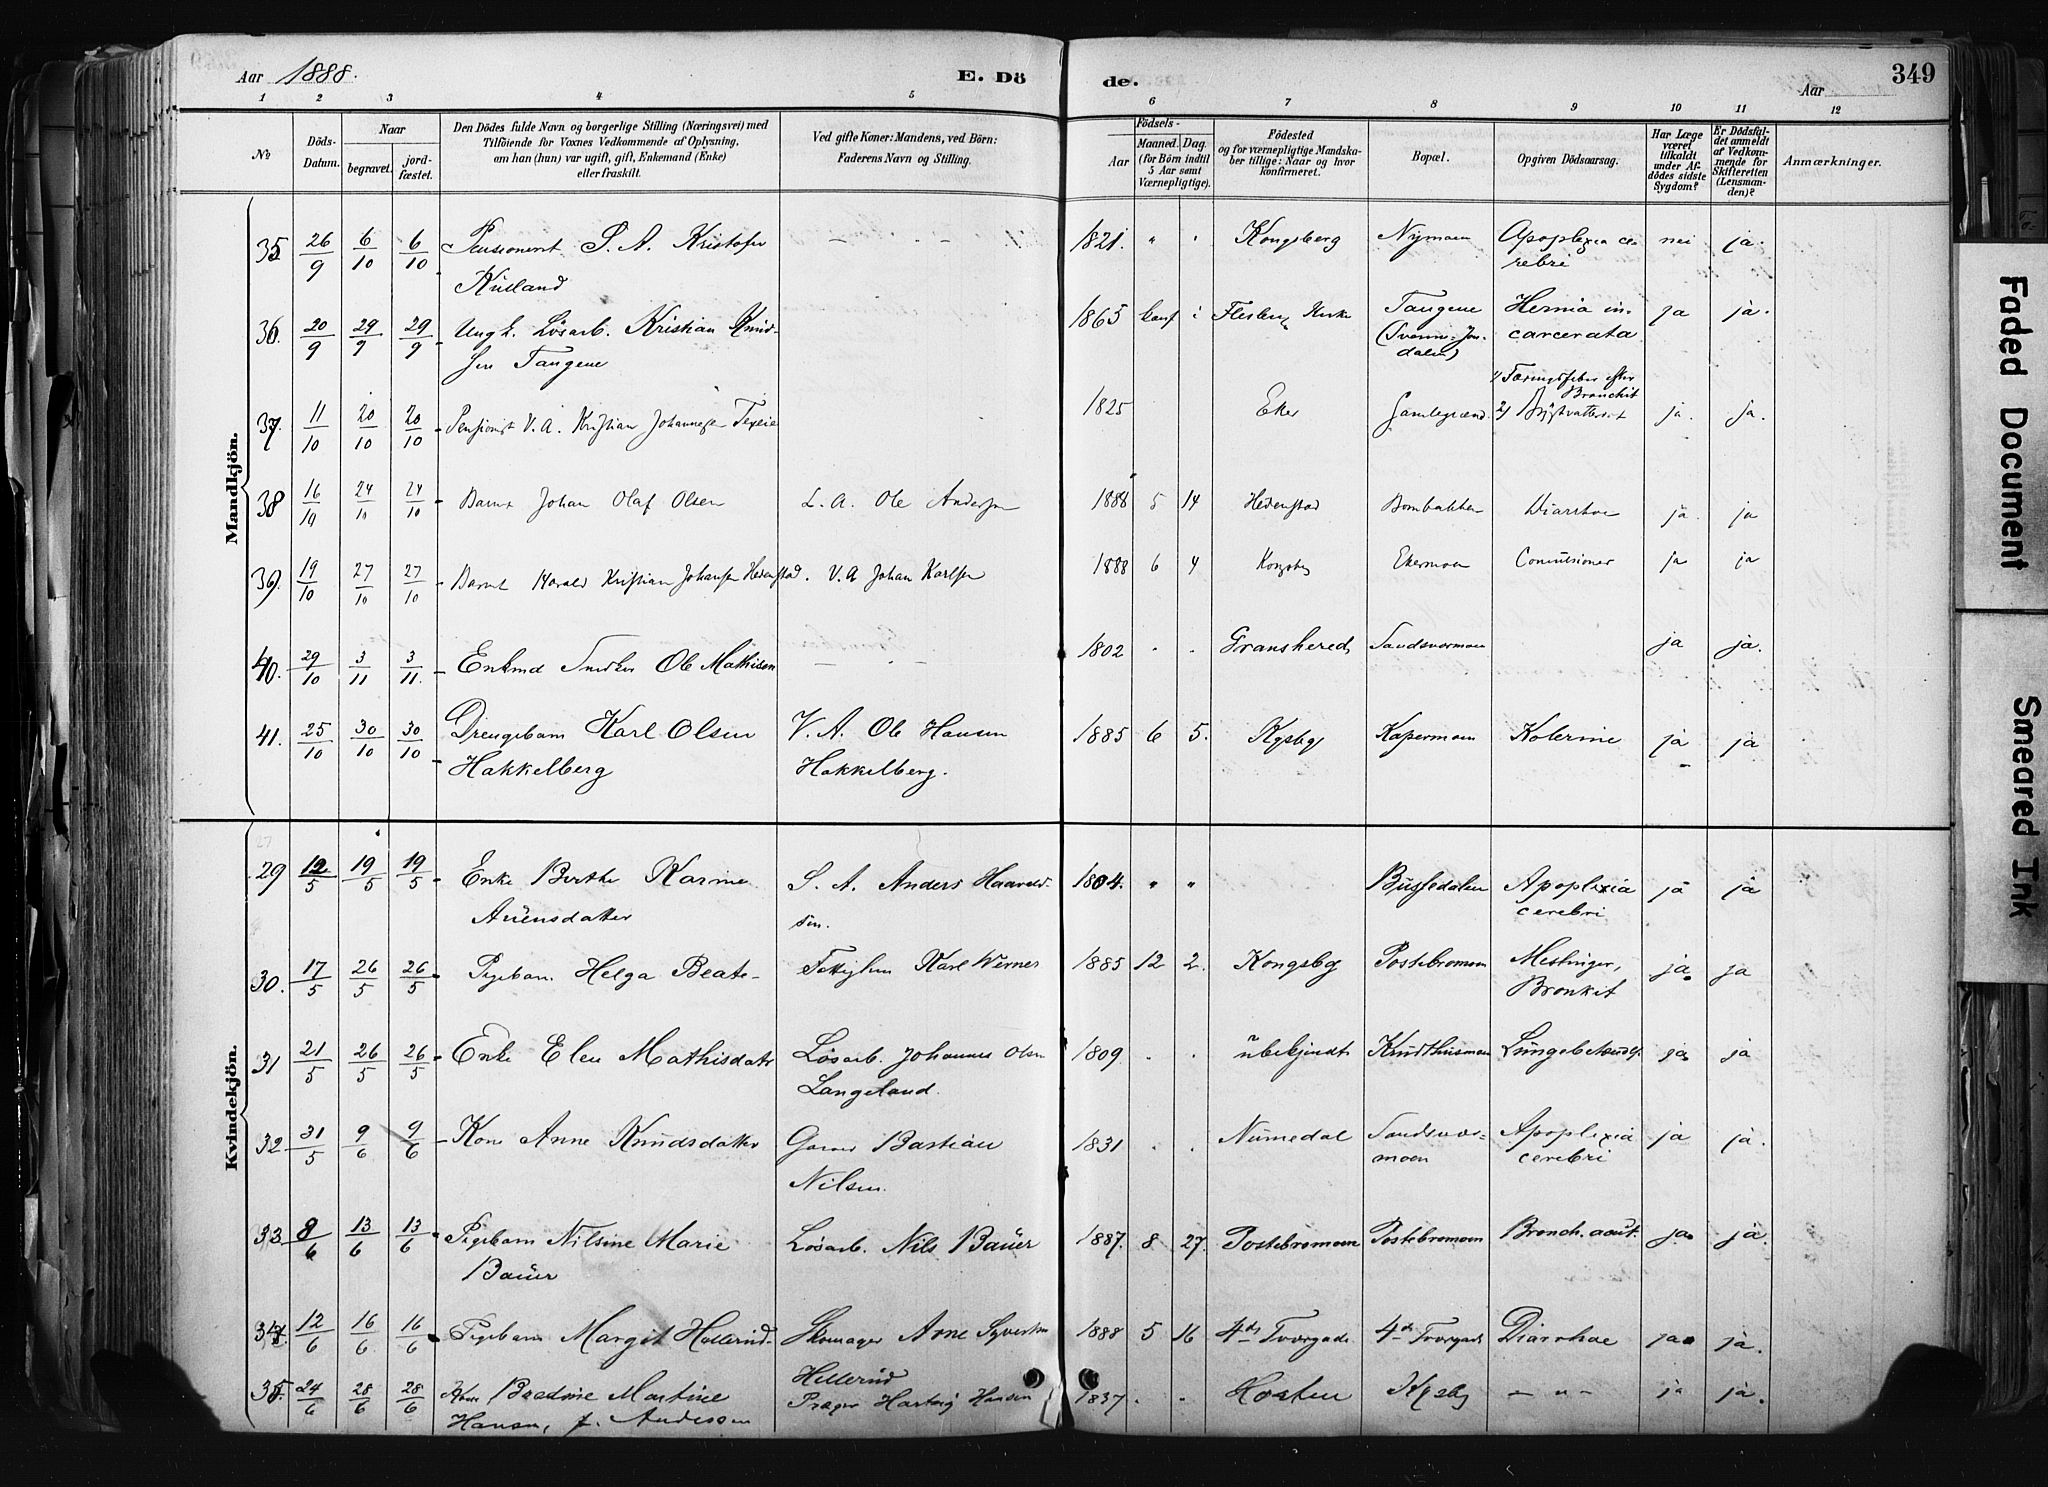 Aar 1888.
E. Dö
de.
Aar
349
1 2 3 4 5 6 7 8 9 10 11 12
No
Döds-
Datum.
Naar
begravet.
jord-
fæstet.
Den Dödes fulde Navn og borgerlige Stilling (Næringsvei) med
Tilföiende for Voxnes Vedkommende af Oplysning,
om han (hun) var ugift, gift, Enkemand (Enke)
eller fraskilt.
Ved gifte Koner: Mandens, ved Börn:
Faderens Navn og Stilling.
Födsels-
Aar
Maaned. Dag.
(for Börn indtil
5 Aar samt
Værnepligtige).
Födested
og for værnepligtige Mandska-
ber tillige: Naar og hvor
konfirmeret.
Bopæl.
Opgiven Dödsaarsag.
Har Læge
været
tilkaldt
under Af-
dödes sidste
Sygdom?
Er Dödsfal-
det anmeldt
af Vedkom-
mende for
Skifteretten
(Lensman-
den)?
Anmærkninger.
Mandkjön.
35 26/9 6/10 6/10 Pensioneret S. A. Kristofer - - - 1821. " " Kongsberg Nymoen Apoplexia ce- nei ja.
Kusland rebri
36 20/9 29/9 29/9 Ungk. Lösarb. Kristian Knud- 1865 Flesberg Kirke Tangene Hernia in- ja ja.
sen Tangene carcerata
37. 11/10 20/10 20/10 Pensionist V. A. Kristian Johannesen 1825 Eker Gamlegrænd. 1/ Tæringsfeber efter
Bronchit
2/ ja. ja.
38 16/10 24/10 24/10 Barnet Johan Olaf Olsen L. A. Ole Andersen 1888 5 14 Hedenstad Bombakken Diarrhoe ja. ja
39. 19/10 27/10 27/10 Barnet Harald Kristian Johansen Hedenstad. V. A Johan Karlsen 1888 6 4 Kongsbg Ekermoen Convulsioner ja ja
40. 29/10 3/11 3/11. Enkmd Snedker Ole Mathisen - - - 1802 . . Gransherred Sandsvermoen ja ja.
41. 25/10 30/10 30/10 Drengebarn Karl Olsen V. A. Ole Hansen 1885 6 5. Kgsbg Kapermoen Kolerine ja ja
Hakkelberg Hakkelberg.
Kvindekjön.
29 12/5 19/5 19/5 Enke Berthe Karine S. A. Anders Haavald- 1804. " " Bussedalen Apoplexia ja ja
Auensdatter sen. cerebri
30. 17/5 26/5 26/5 Pigebarn Helga Beate- Fattiglem Karl Werner 1885 12 2. Kongsbg Postebromoen Meslinger, ja. ja
Bronkit
31 21/5 26/5 26/5 Enke Elen Mathisdatr Lösarb. Johannes Olsen 1809 . . übekjendt Krudthusmoen Lungebetændelse ja ja
Langeland.
32 31/5 9/6 9/6 Kone Anne Knudsdatter Garver Bastian 1831 . . Numedal Sandsvær- Apoplexia ja ja.
Nilsen. moen cerebri
33. 8/6 13/6 13/6 Pigebarn Nilsine Marie Lösarb. Nils Bauer 1887. 8 27. Postebromoen Postebromoen Bronch. acut. ja. ja.
Bauer
34. 12/6 16/6 16/6 Pigebarn Margit Hellerud- Skomager Arne Syvertsen 1888 5 16 4de Tvergade 4de Tvergade Diarrhoe ja. ja.
Hellerud
35. 24/6 28/6 28/6 Kone Bredine Martine Præger Hartvig Hansen 1837 . . Horten Kgsbg - " - ja ja.
Hansen, f. Andersen
Faded Document
Smeared Ink